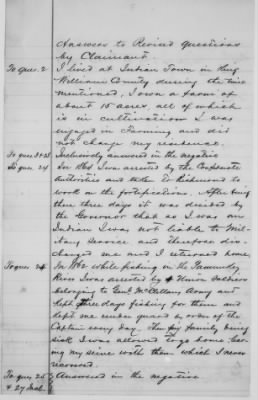 Answers to Revised questions
by Claimant.
To ques. 2 I lived at Indian Town in King
William County during the time
mentioned. I own a farm of
about 15 acres, all of which
is in cultivation I was
engaged in Farming and did
not change my residence.
To ques Inclusively answered in the negative
To ques. 24 In 1862 I was arrested by the Confederate
Authorities and taken to Richmond to
work on the fortifications. After being
there three days it was decided by
the Governor that as I was an
Indian I was not liable to Mil-
itary Service and therefore dis-
charged me and I returned home.
To ques In 1862 while fishing in the Pamunkey
River I was arrested by Union soldiers
belonging to Genl McClellans Army and
kept three days fishing for them and
kept me under guard by order of the
Captain every day. The family being
sick I was allowed to go home leav-
ing my seine with them which I never
recovered.
To ques 25 Answered in the negative
& 27 Incl.